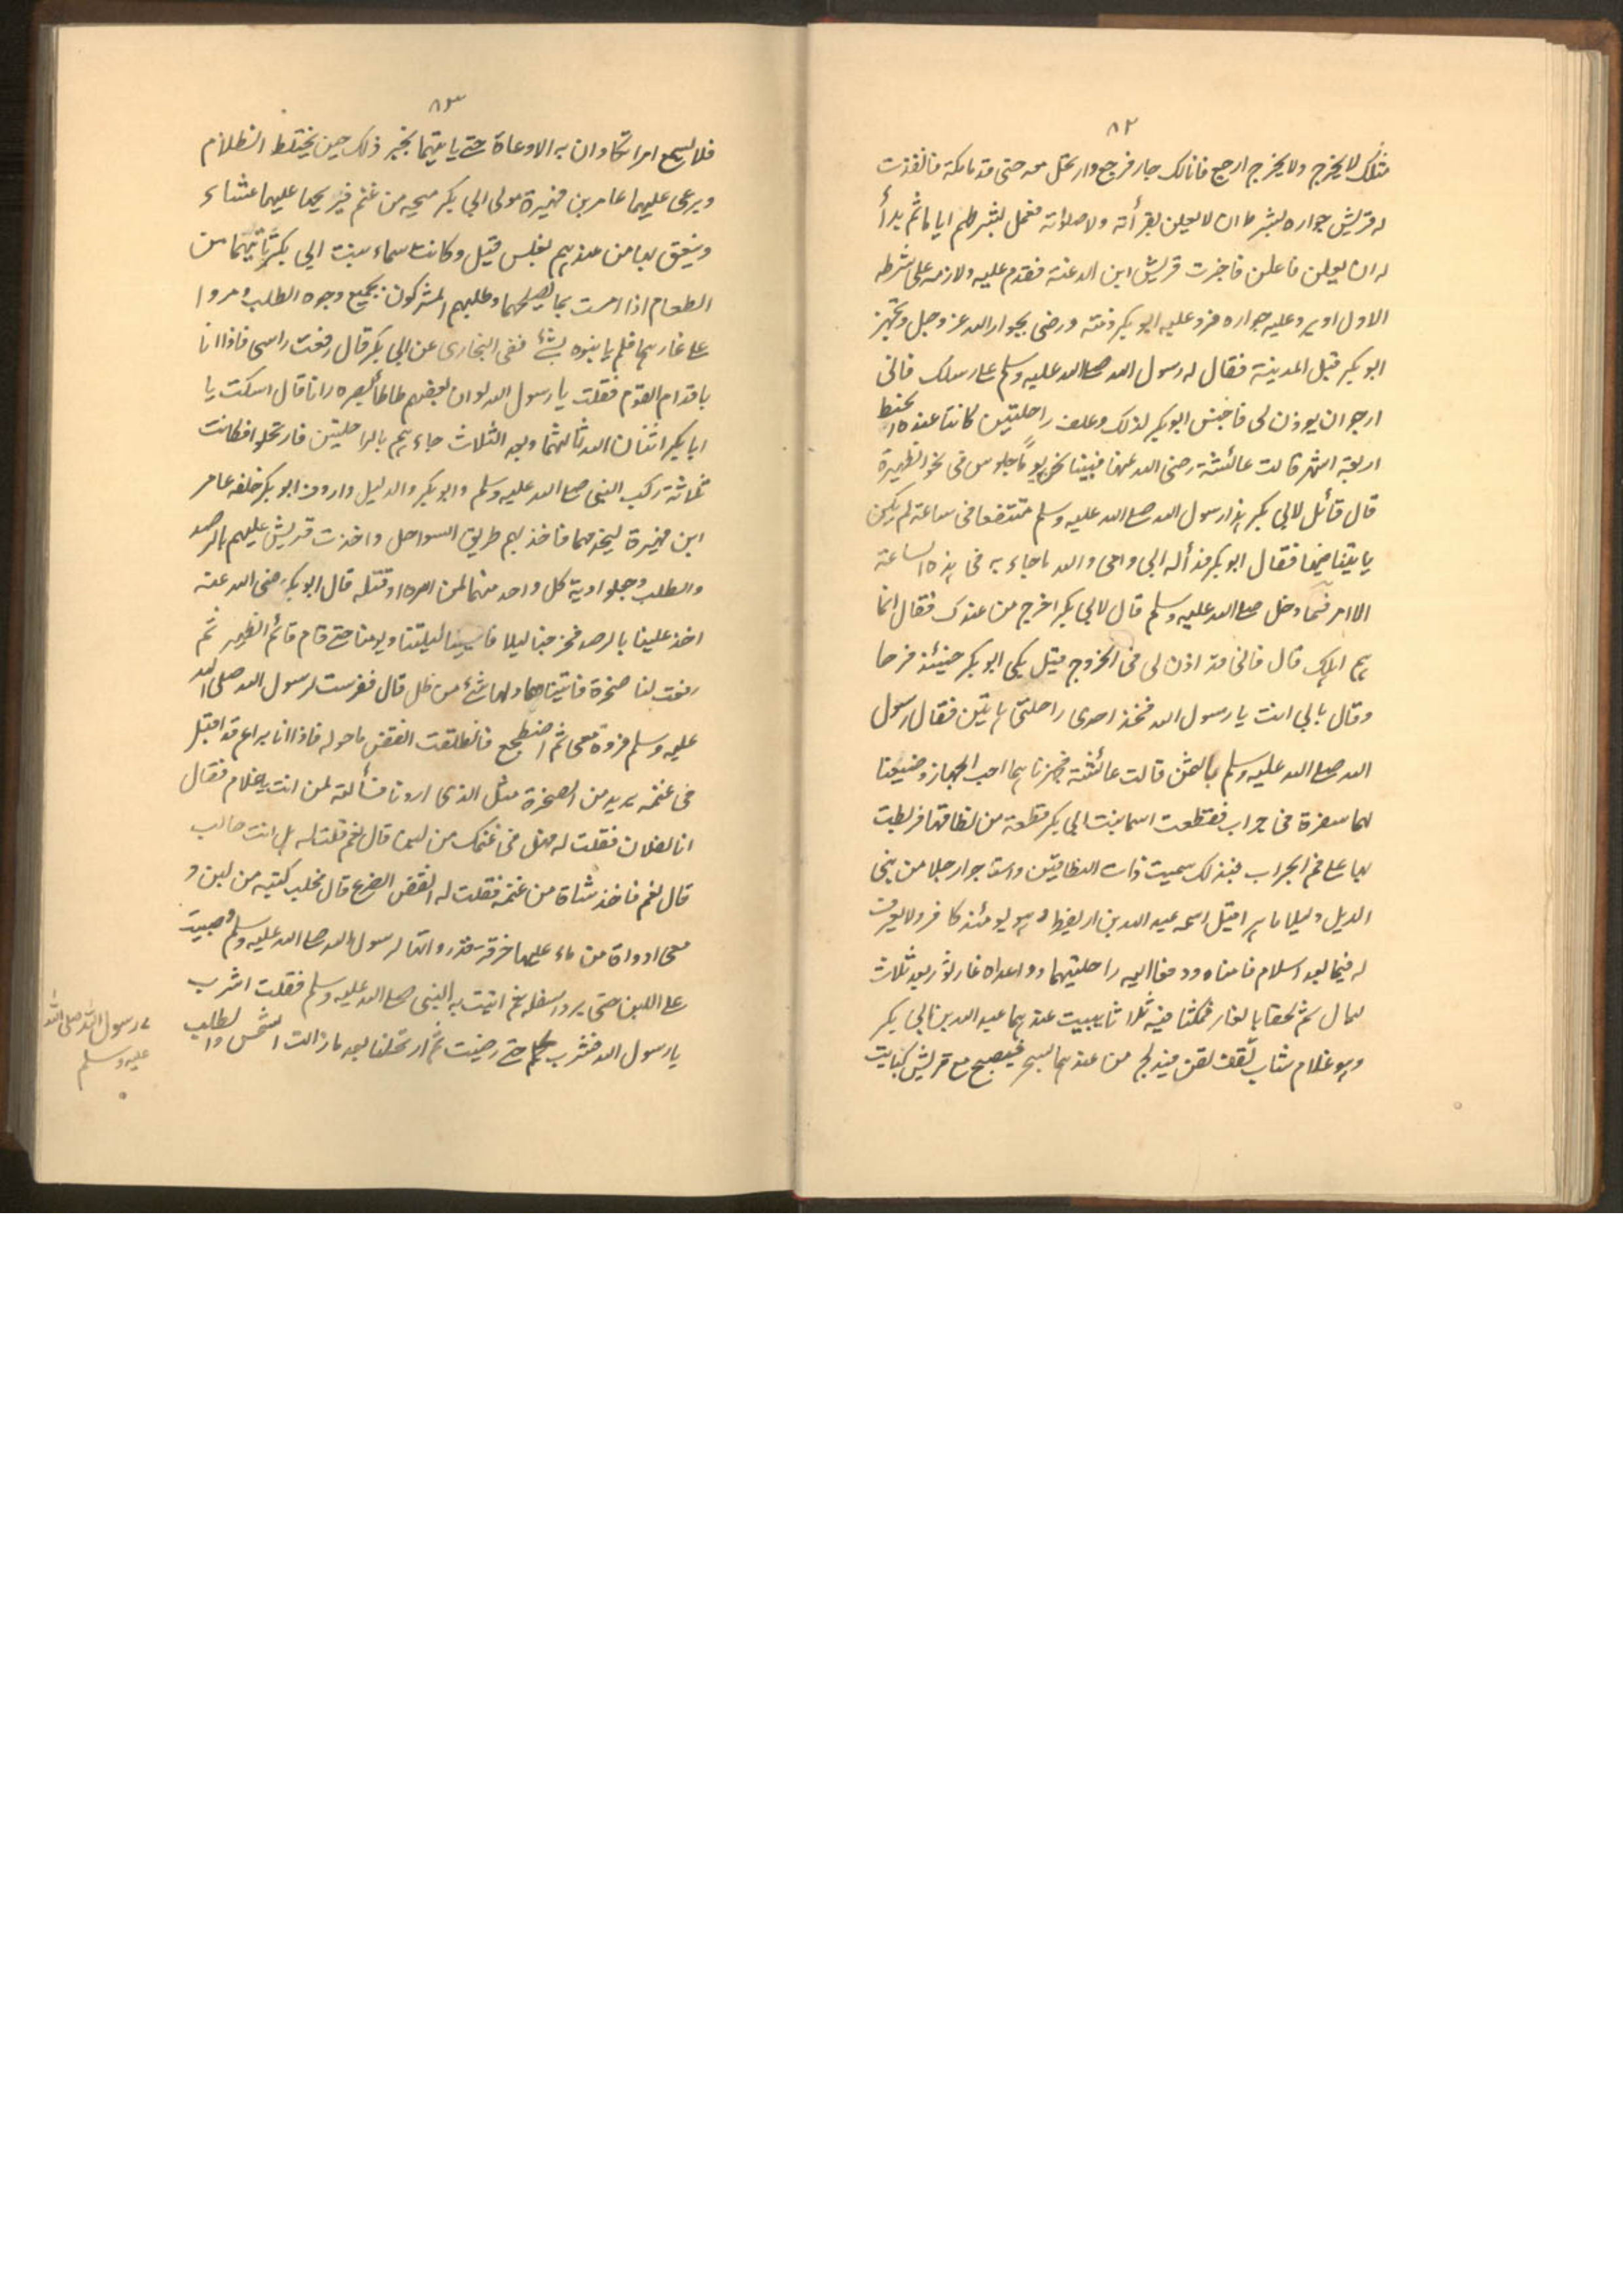 ٨٢
مثلك لا يخرج ولا يخرج ارجع فانا لك جار فرجع وارتحل معه حتى قدما مكة فانفذت
له قريش جواره بشرط ان لا يعلن بقرأته ولا صلوته فعمل بشرطهم اياما ثم بدأ
له ان يعلن فاعلن فاخبرت قريش ابن الدغنة فقدم عليه ولازمه على شرطه
الاول او يرد عليه جواره فرد عليه ابو بكر ذمته ورضى بجوار الله عز وجل وتجهز
ابو بكر قبل المدينة فقال له رسول الله صلى الله عليه وسلم على رسلك فانى
ارجو ان يوذن لى فاحبس ابو بكر لذلك وعلف راحلتين كانتا عنده الخبط
اربعة اشهر قالت عائشة رضى الله عنها فبينا نحن يوماً جلوس فى نحر الظهيرة
قال قائل لابى بكر هذا رسول الله صلى الله عليه وسلم متقنعا فى ساعة لم يكن
ياتينا فيها فقال ابو بكر فدأ له ابى وامى والله ما جاء به فى هذه الساعة
الا امر فلما دخل صلى الله عليه وسلم قال لابى بكر اخرج من عندك فقال انما
هم اهلك قال فانى قد اذن لى فى الخروج قيل بكى ابو بكر حينئذ فرحا
وقال بابى انت يا رسول الله فخذ احدى راحلتى هاتين فقال رسول
الله صلى الله عليه وسلم بالثمن قالت عائشة فجهزناهما احب الجهاز وضيعنا
لهما سفرة فى جراب فقطعت اسما بنت ابى بكر قطعة من نطاقها فربطت
بها على فم الجراب فبذلك سميت ذات النطاقين واستاجرا رجلا من بنى
الديل دليلا ماهرا قيل اسمه عبد الله بن اريقط وهو يومئذ كافر ولا يعرف
له فيما بعد اسلام فامناه ودفعا اليه راحلتيهما وواعداه غار ثور بعد ثلاث
ليال ثم لحقا بالغار فمكثا فيه ثلاثا يبيت عندهما عبد الله بن ابى بكر
وهو غلام شاب ثقف لقن فيدلج من عندهما بسحر فيصبح مع قريش كبايت
٨٣
فلا يسمع امرا يكادان به الا وعاه حتى ياتيهما بخبر ذلك حين يختلط الظلام
ويرعى عليهما عامر بن فهيرة مولى ابى بكر منحة من غنم فيريحها عليهما عشاء
وينعق بها من عندهم بغلس قيل وكانت اسماء بنت ابى بكر تأتيهما من
الطعام اذا امست بما يصلحهما وطلبهم المشركون بجميع وجوه الطلب ومروا
على غارهما فلم يابنوه بشئ ففى البخارى عن ابى بكر قال رفعت راسى فاذا انا
باقدام القوم فقلت يا رسول الله لو ان بعضهم طاطأ بصره رانا قال اسكت يا
ابا بكر اثنان الله ثالثهما وبعد الثلاث جاءهم بالراحلتين فارتحلوا فكانت
ثلاثة ركب النبى صلى الله عليه وسلم وابو بكر والدليل واردف ابو بكر خلفه عامر
ابن فهيرة ليخدمهما فاخذ بهم طريق السواحل واخذت قريش عليهم بالرصد
والطلب وجعلوا دية كل واحد منهما لمن اسره او قتله قال ابو بكر رضى الله عنه
اخذ علينا بالرصد فخرجنا ليلا فاحيينا ليلتنا ويومنا حتى قام قائم الظهير ثم
رفعت لنا صخرة فاتيناها ولها شئ من ظل قال ففرشت لرسول الله صلى الله
عليه وسلم فروة معى ثم اضطجع فانطلقت انفض ما حوله فاذا انا براع قد اقبل
فى غنمه يريد من الصخرة مثل الذى اردنا فسألته لمن انت يا غلام فقال
انا لفلان فقلت له فهل فى غنمك من لبن قال نعم قلت له هل انت حالب
قال نعم فاخذ شاة من غنمه فقلت له انفض الضرع قال فحلب كثبه من لبن و
معى ادواة من ماء عليها خرقة لرسول الله صلى الله عليه وسلم فصببت
على اللبن حتى برد اسفله ثم اتيت به النبى صلى الله عليه وسلم فقلت اشرب
يا رسول الله فشرب حتى رضيت ثم ارتحلنا بعد ما زالت الشمس والطلب
رسول الله صلى الله
عليه وسلم